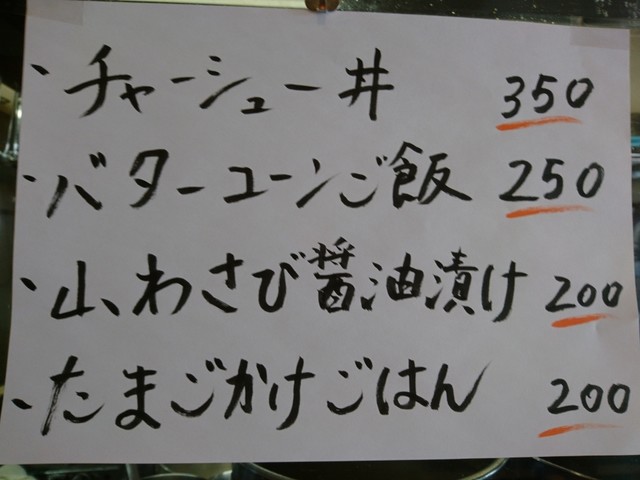 ・チャーシュー丼 350
・バターコーンご飯 250
・山わさび醤油漬け 200
・たまごかけごはん 200